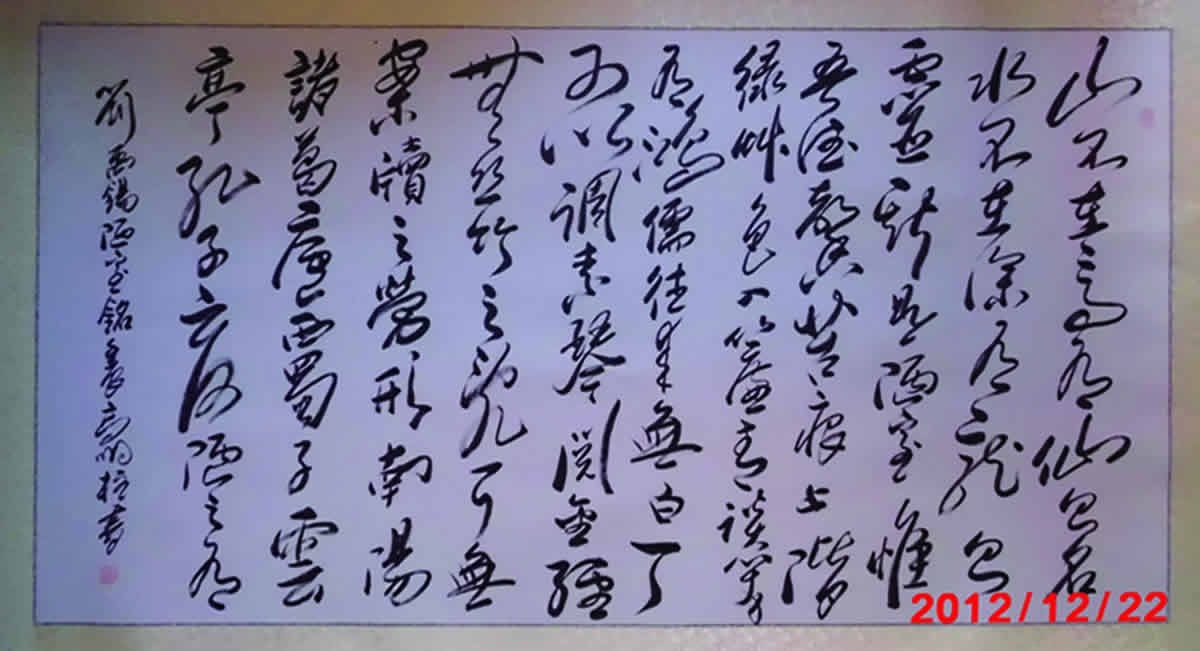 山不在高有仙則名
水不在深有龍則
靈斯是陋室惟
吾德馨苔痕上階
緑艸色入簾青談笑
有鴻儒往來無白丁
可以調素琴閱金經
無絲竹之乱耳無
案牘之勞形南陽
諸葛廬西蜀子雲
亭孔子云何陋之有
劉禹錫陋室銘高明柱書
2012/12/22